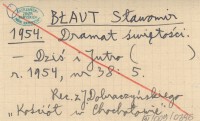 BŁAUT Sławomir
1954. Dramat świętości.
— Dziś i Jutro ( )
r. 1954, nr 38 s. 5.
Rec. z J. Dobraczyńskiego
"Kościół w Chochołowie"